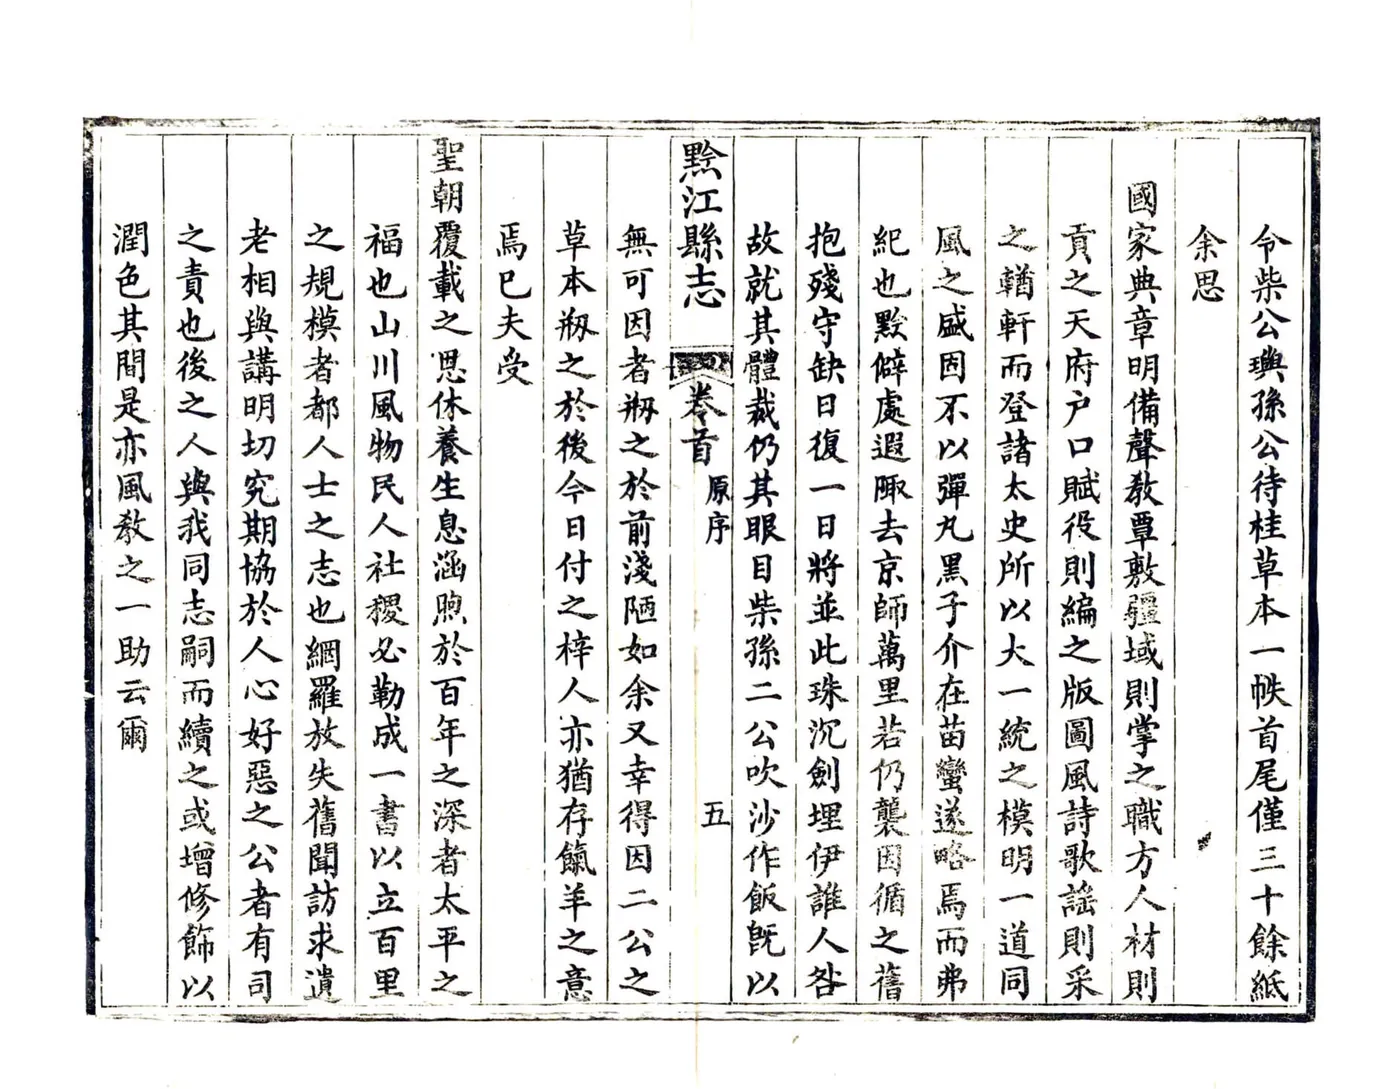 令柴公璵孫公待桂草本一帙首尾僅三十餘紙
余思
國家典章明備聲敎覃敷疆域則掌之職方人材則
貢之天府户口賦役則編之版圖風詩歌謠則采
之輶軒而登諸太史所以大一統之模明一道同
風之盛因不以彈丸黑子介在苗蠻遂略焉而弗
紀也黔僻處遐陬去京師萬里若仍襲因循之舊
抱殘守缺日復一日將並此珠沉劍埋伊誰人咎
故就其體裁仍其眼目柴孫二公吹沙作飯旣以
黔江縣志 卷首 原序 五
無可因者剏之於前淺陋如余又幸得因二公之
草本剏之於後今日付之梓人亦猶存餼羊之意
焉已夫受
聖朝覆載之恩休養生息涵煦於百年之深者太平之
福也山川風物民人社稷必勒成一書以立百里
之規模者都人士之志也網羅放失舊聞訪求遺
老相與講明切究期協於人心好惡之公者有司
之責也後之人與我同志嗣而續之或增修飾以
潤色其間是亦風敎之一助云爾